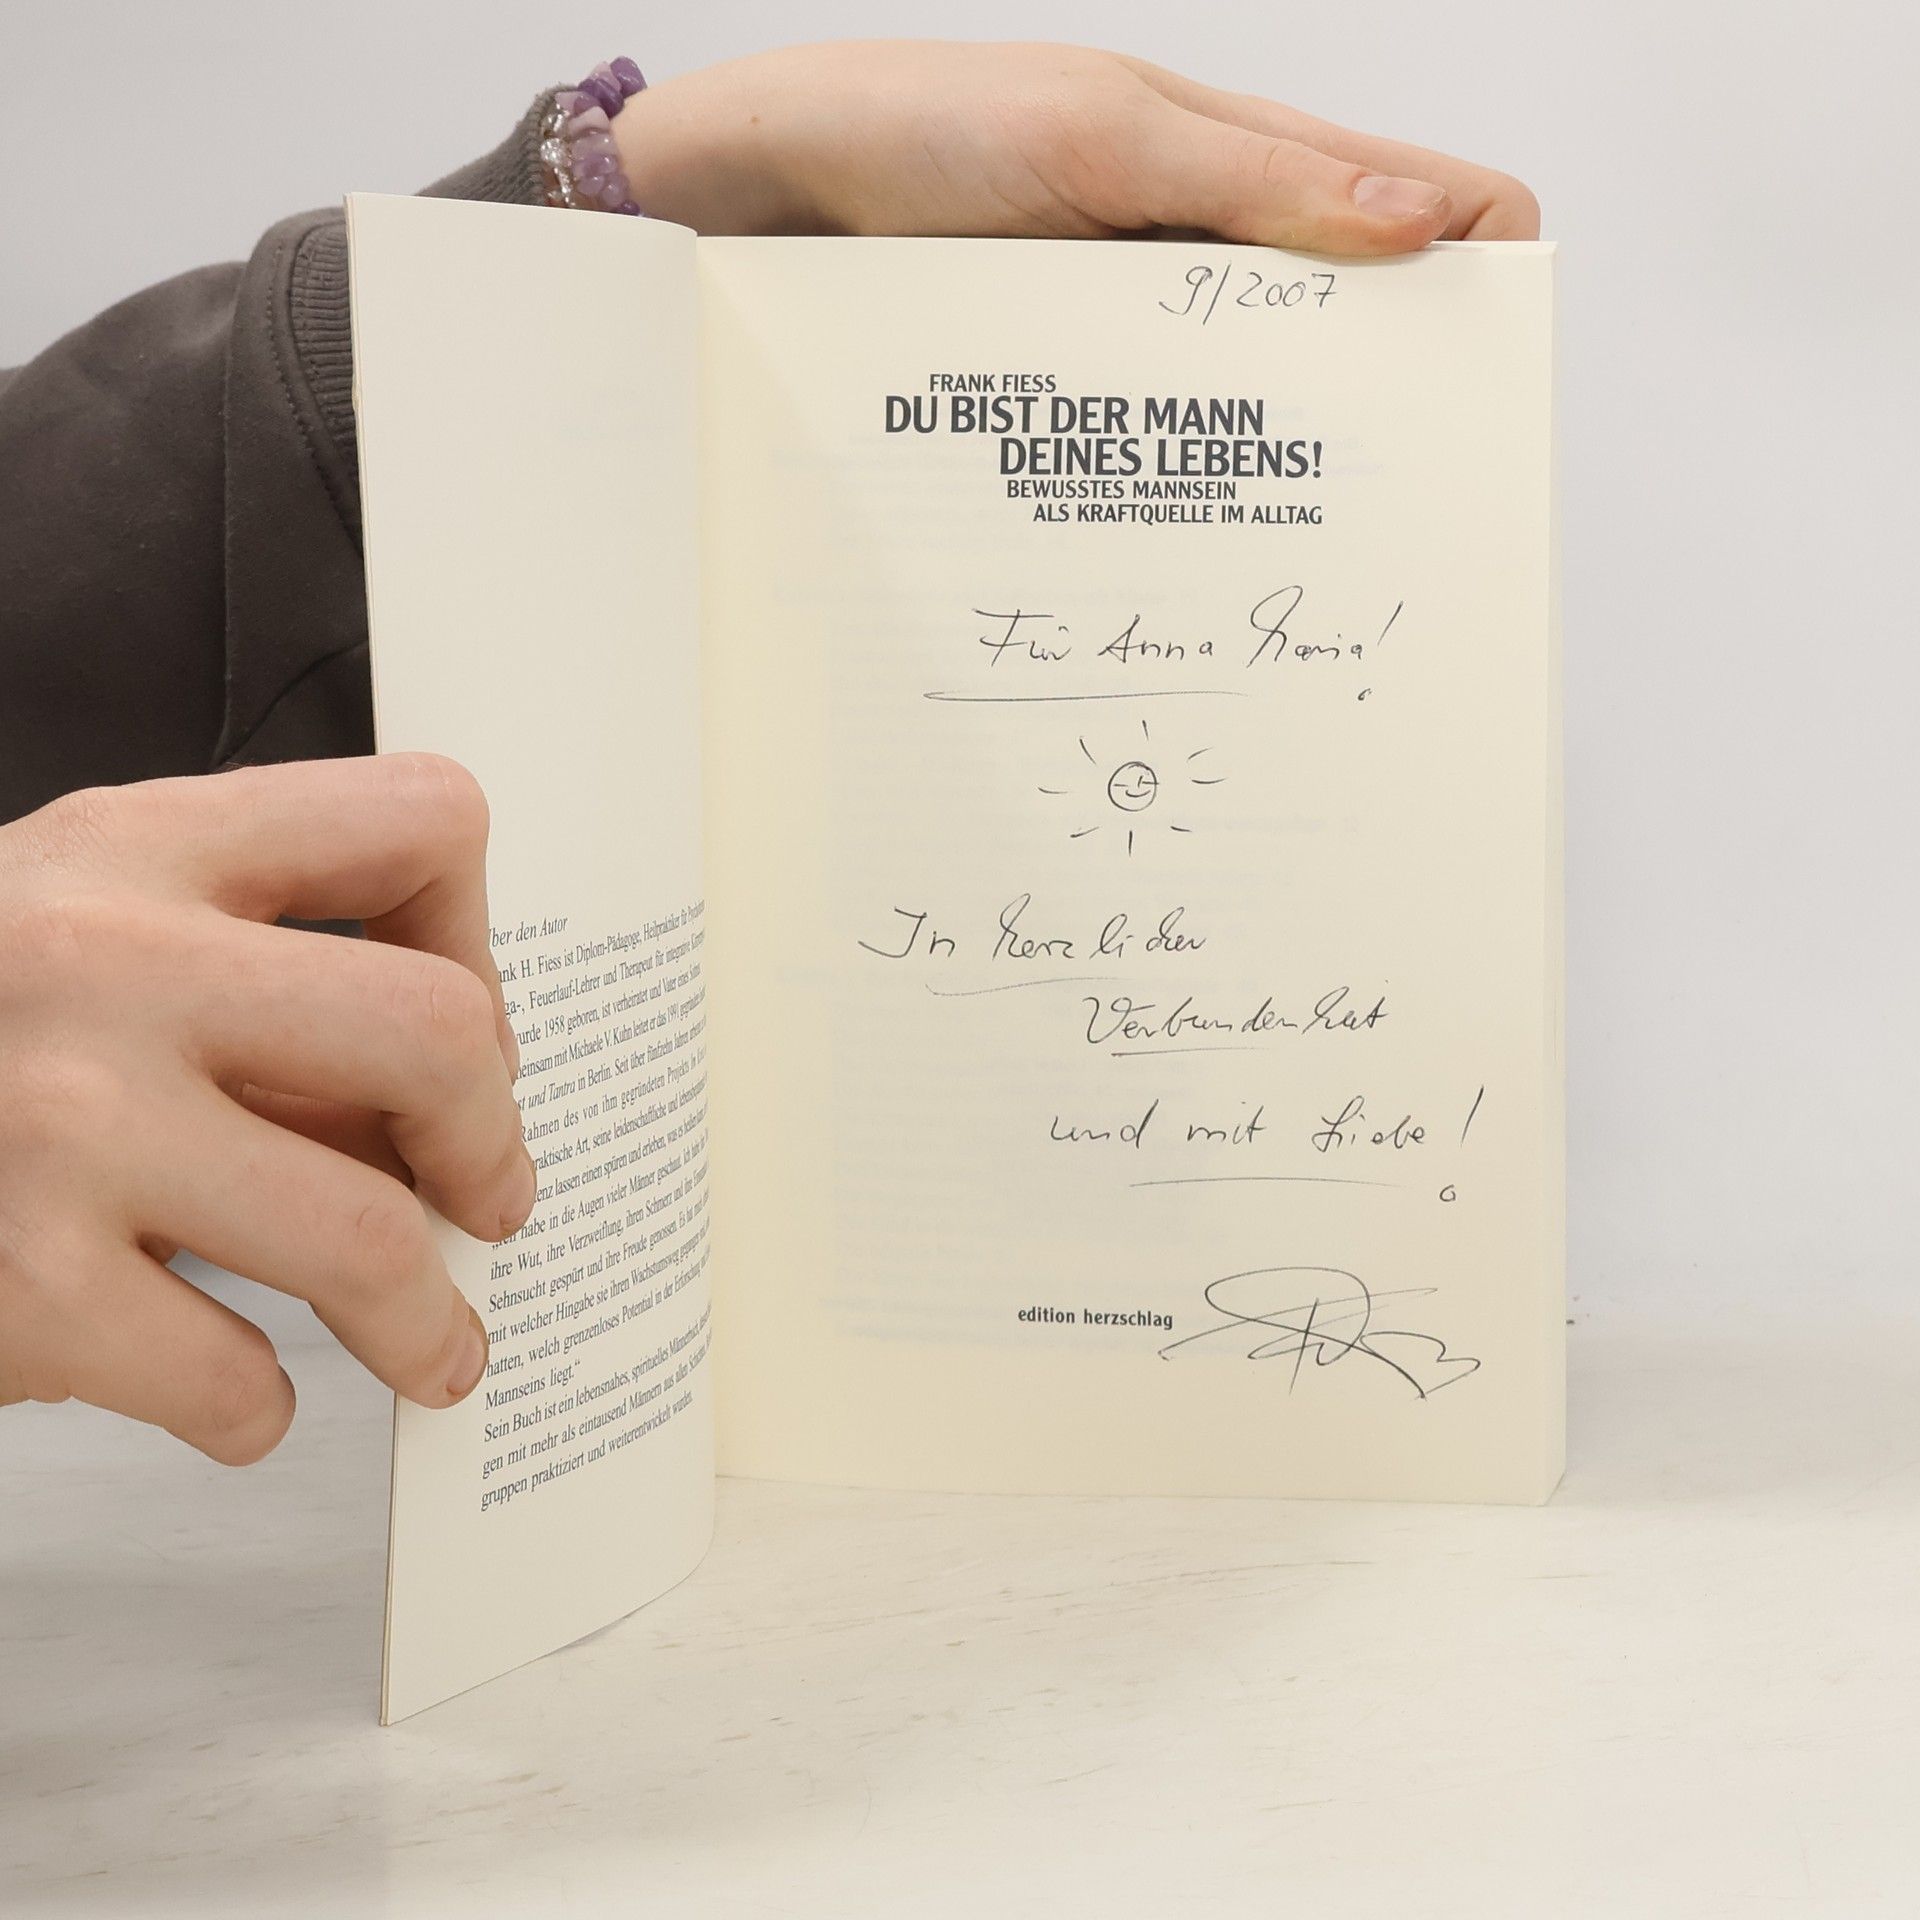 ber den Autor
nk H. Fiess ist Diplom-Pädagoge, Heilpraktiker für
ga-, Feuerlauf-Lehrer und Therapeut für integrative
urde 1958 geboren, ist verheiratet und Vater eines
einsam mit Michaele V. Kuhn leitet er das 1991
st und Tantra in Berlin. Seit über fünfzehn Jahren
Rahmen des von ihm gegründeten Projekts
raktische Art, seine leidenschaftliche und
enz lassen einen spüren und erleben, was es
habe in die Augen vieler Männer geschaut. Ich
ihre Wut, ihre Verzweiflung, ihren Schmerz und ihre
Sehnsucht gespürt und ihre Freude genossen. Es hat mich
mit welcher Hingabe sie ihren Wachstumsweg gegangen
hatten, welch grenzenloses Potential in der Erforschung
Mannseins liegt.“
Sein Buch ist ein lebensnahes, spirituelles Männerbuch,
gen mit mehr als eintausend Männern aus allen
gruppen praktiziert und weiterentwickelt wurden.
9/2007
FRANK FIESS
DU BIST DER MANN
DEINES LEBENS!
BEWUSSTES MANNSEIN
ALS KRAFTQUELLE IM ALLTAG
Für Anna Maria!
In herzlicher
Verbundenheit
und mit Liebe!
edition herzschlag